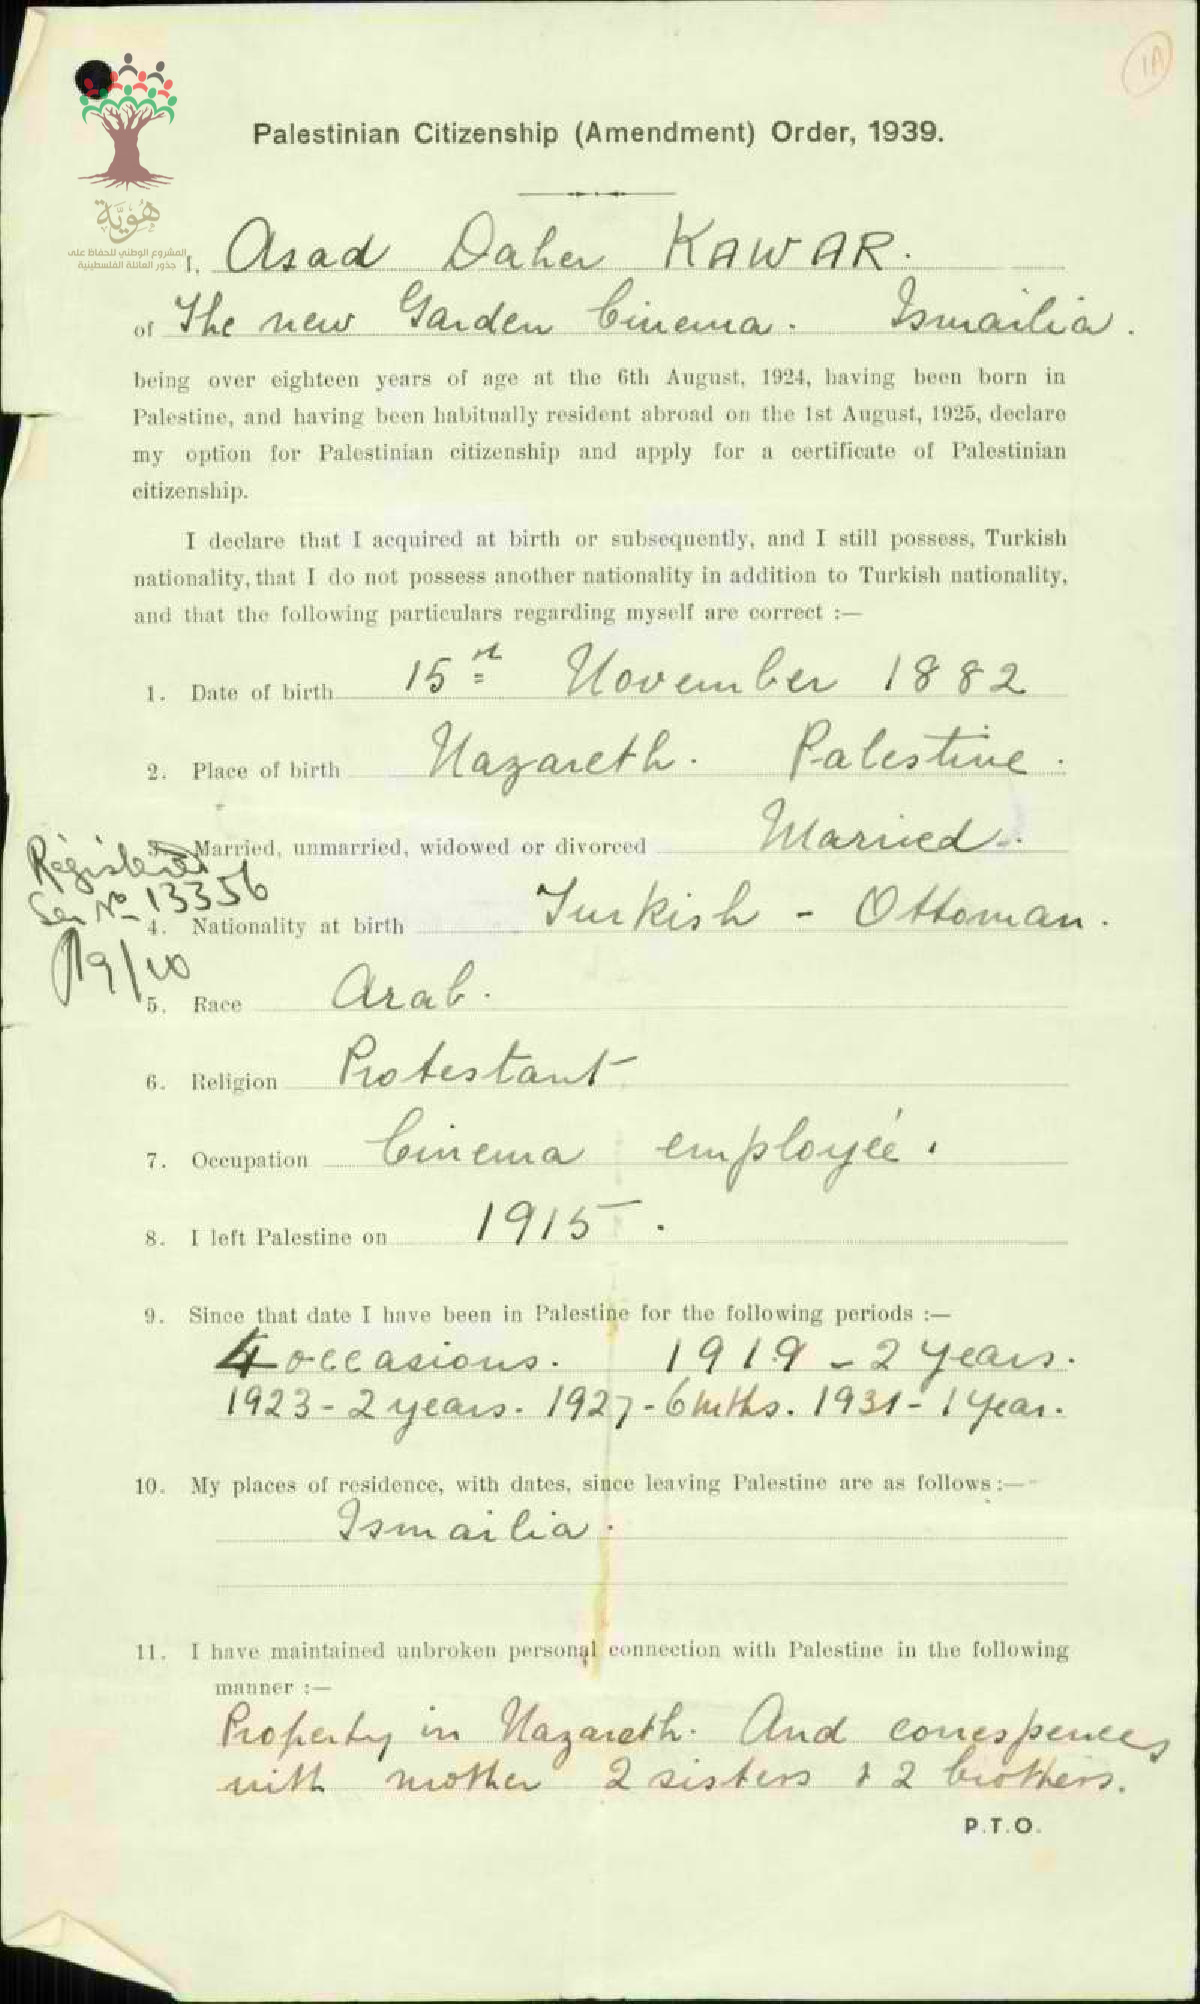 1A
هُوِيَّة
المشروع الوطني للحفاظ على
جذور العائلة الفلسطينية
Palestinian Citizenship (Amendment) Order, 1939.
I, Asad Daher KAWAR.
of The new Garden Cinema. Ismailia.
being over eighteen years of age at the 6th August, 1924, having been born in
Palestine, and having been habitually resident abroad on the 1st August, 1925, declare
my option for Palestinian citizenship and apply for a certificate of Palestinian
citizenship.
I declare that I acquired at birth or subsequently, and I still possess, Turkish
nationality, that I do not possess another nationality in addition to Turkish nationality,
and that the following particulars regarding myself are correct :—
1. Date of birth 15 November 1882
2. Place of birth Nazareth. Palestine.
3. Married, unmarried, widowed or divorced Married.
Registered
Ser No 13356
4. Nationality at birth Turkish - Ottoman.
19/10
5. Race Arab.
6. Religion Protestant
7. Occupation Cinema employée.
8. I left Palestine on 1915.
9. Since that date I have been in Palestine for the following periods :—
4 occasions. 1919 - 2 years.
1923 - 2 years. 1927 - 6 mths. 1931 - 1 year.
10. My places of residence, with dates, since leaving Palestine are as follows :—
Ismailia.
11. I have maintained unbroken personal connection with Palestine in the following
manner :—
Property in Nazareth. And
with mother 2 sisters & 2 brothers.
P.T.O.